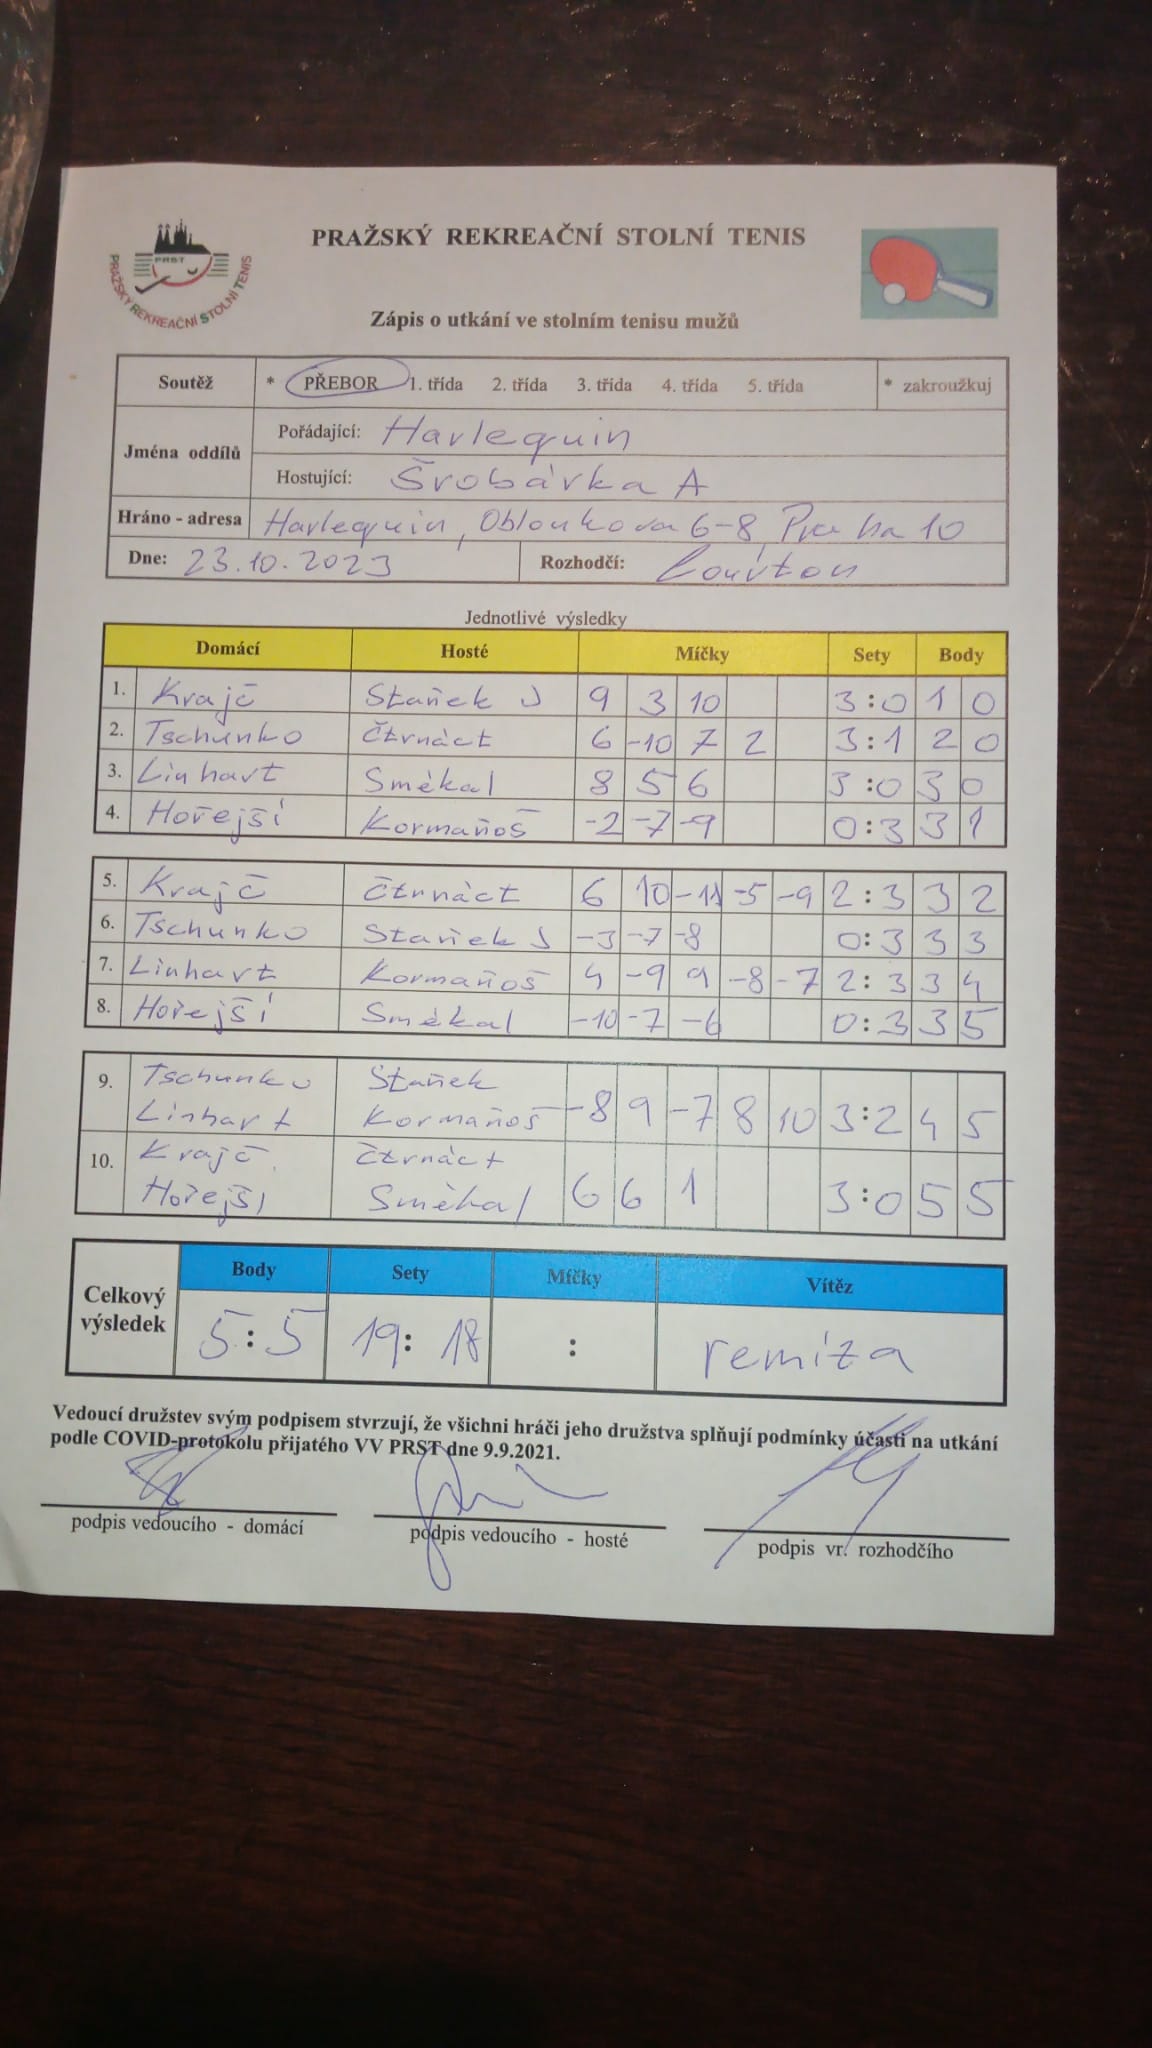 PRAŽSKÝ REKREAČNÍ STOLNÍ TENIS
PRST
PRAŽSKÝ REKREAČNÍ STOLNÍ TENIS
Zápis o utkání ve stolním tenisu mužů
Soutěž * PŘEBOR 1. třída 2. třída 3. třída 4. třída 5. třída * zakroužkuj
Jména oddílů
Pořádající: Harlequin
Hostující: Šrobárka A
Hráno - adresa Harlequin, Obloukova 6-8, Praha 10
Dne: 23.10.2023 Rozhodčí:
Jednotlivé výsledky
Domácí Hosté Míčky Sety Body
1. Krajč Staňek J 9 3 10 3:0 1 0
2. Tschunko Čtrnáct 6 -10 7 2 3:1 2 0
3. Linhart Smékal 8 5 6 3:0 3 0
4. Hořejší Kormaňoš -2 -7 -9 0:3 3 1
5. Krajč Čtrnáct 6 10 -11 -5 -9 2:3 3 2
6. Tschunko Staňek J -3 -7 -8 0:3 3 3
7. Linhart Kormaňoš 4 -9 9 -8 -7 2:3 3 4
8. Hořejší Smékal -10 -7 -6 0:3 3 5
9. Tschunko Staňek
Linhart Kormaňoš -8 9 -7 8 10 3:2 4 5
10. Krajč Čtrnáct
Hořejší Smékal 6 6 1 3:0 5 5
Celkový výsledek
Body Sety Míčky Vítěz
5:5 19:18 : remíza
Vedoucí družstev svým podpisem stvrzují, že všichni hráči jeho družstva splňují podmínky účasti na utkání
podle COVID-protokolu přijatého VV PRST dne 9.9.2021.
podpis vedoucího - domácí podpis vedoucího - hosté podpis vr. rozhodčího